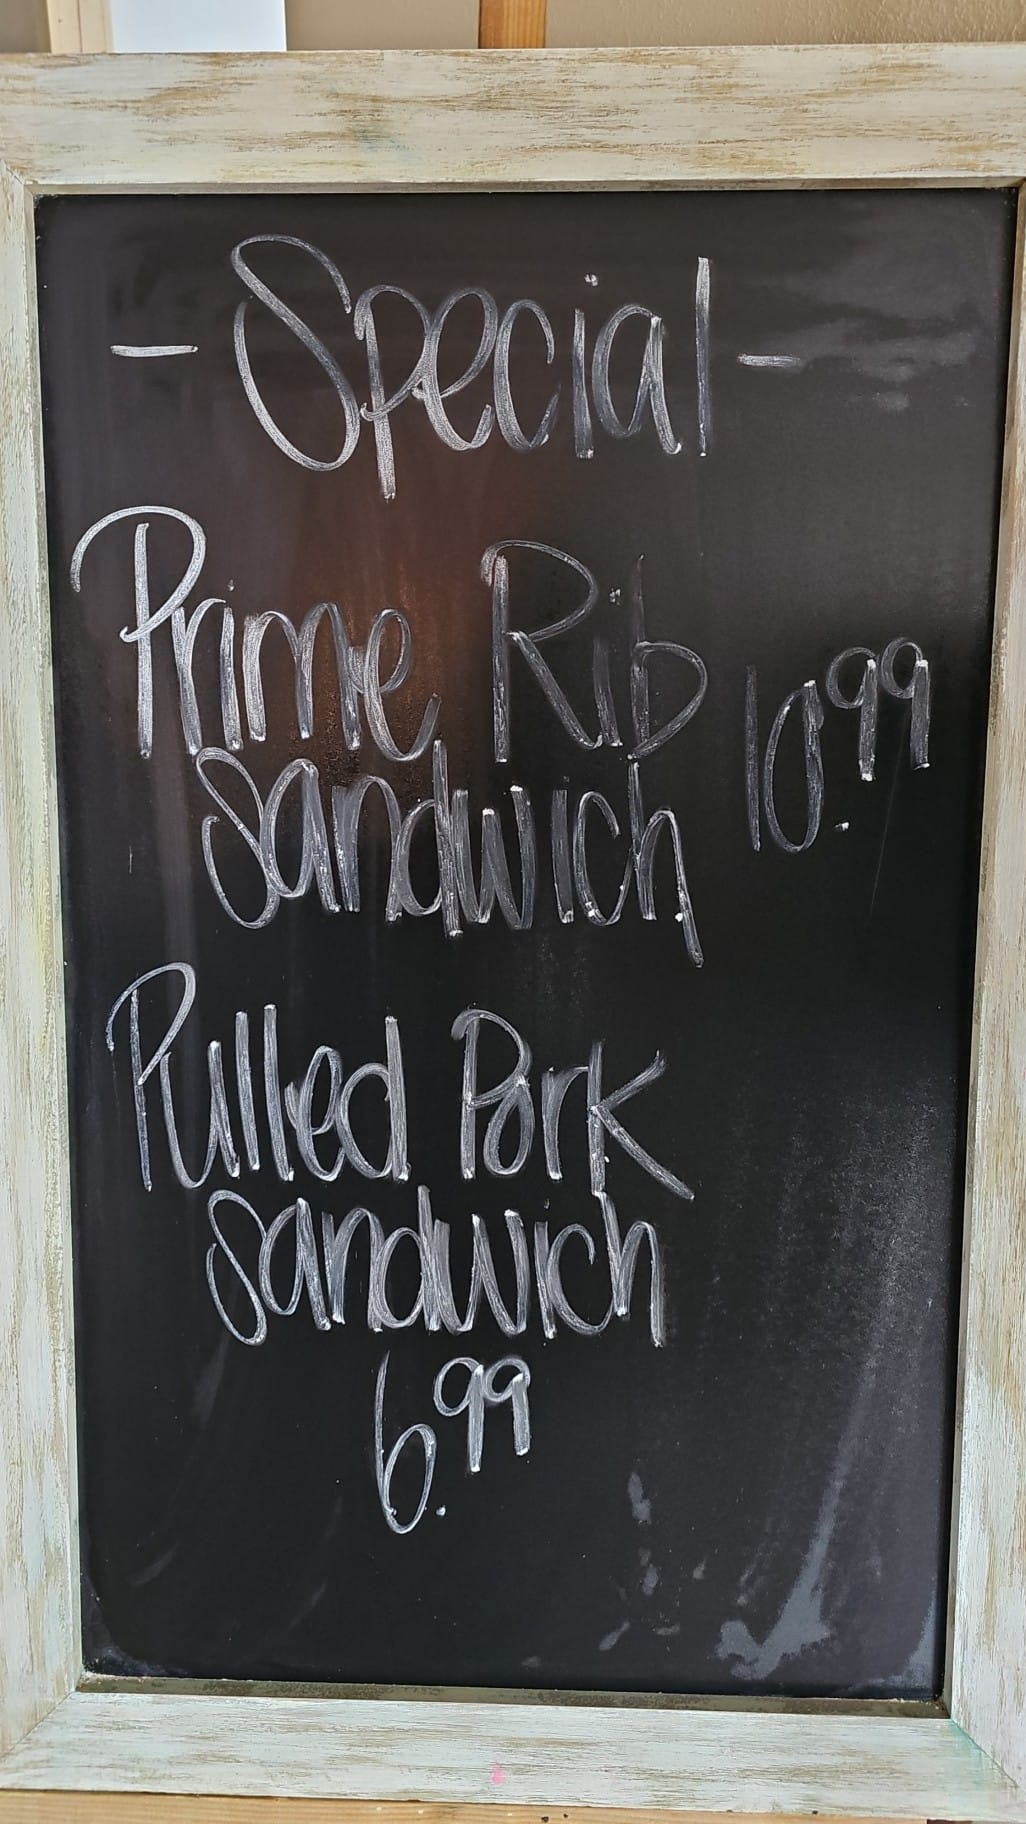 - Special -
Prime Rib
sandwich 10.99
Pulled Pork
sandwich
6.99